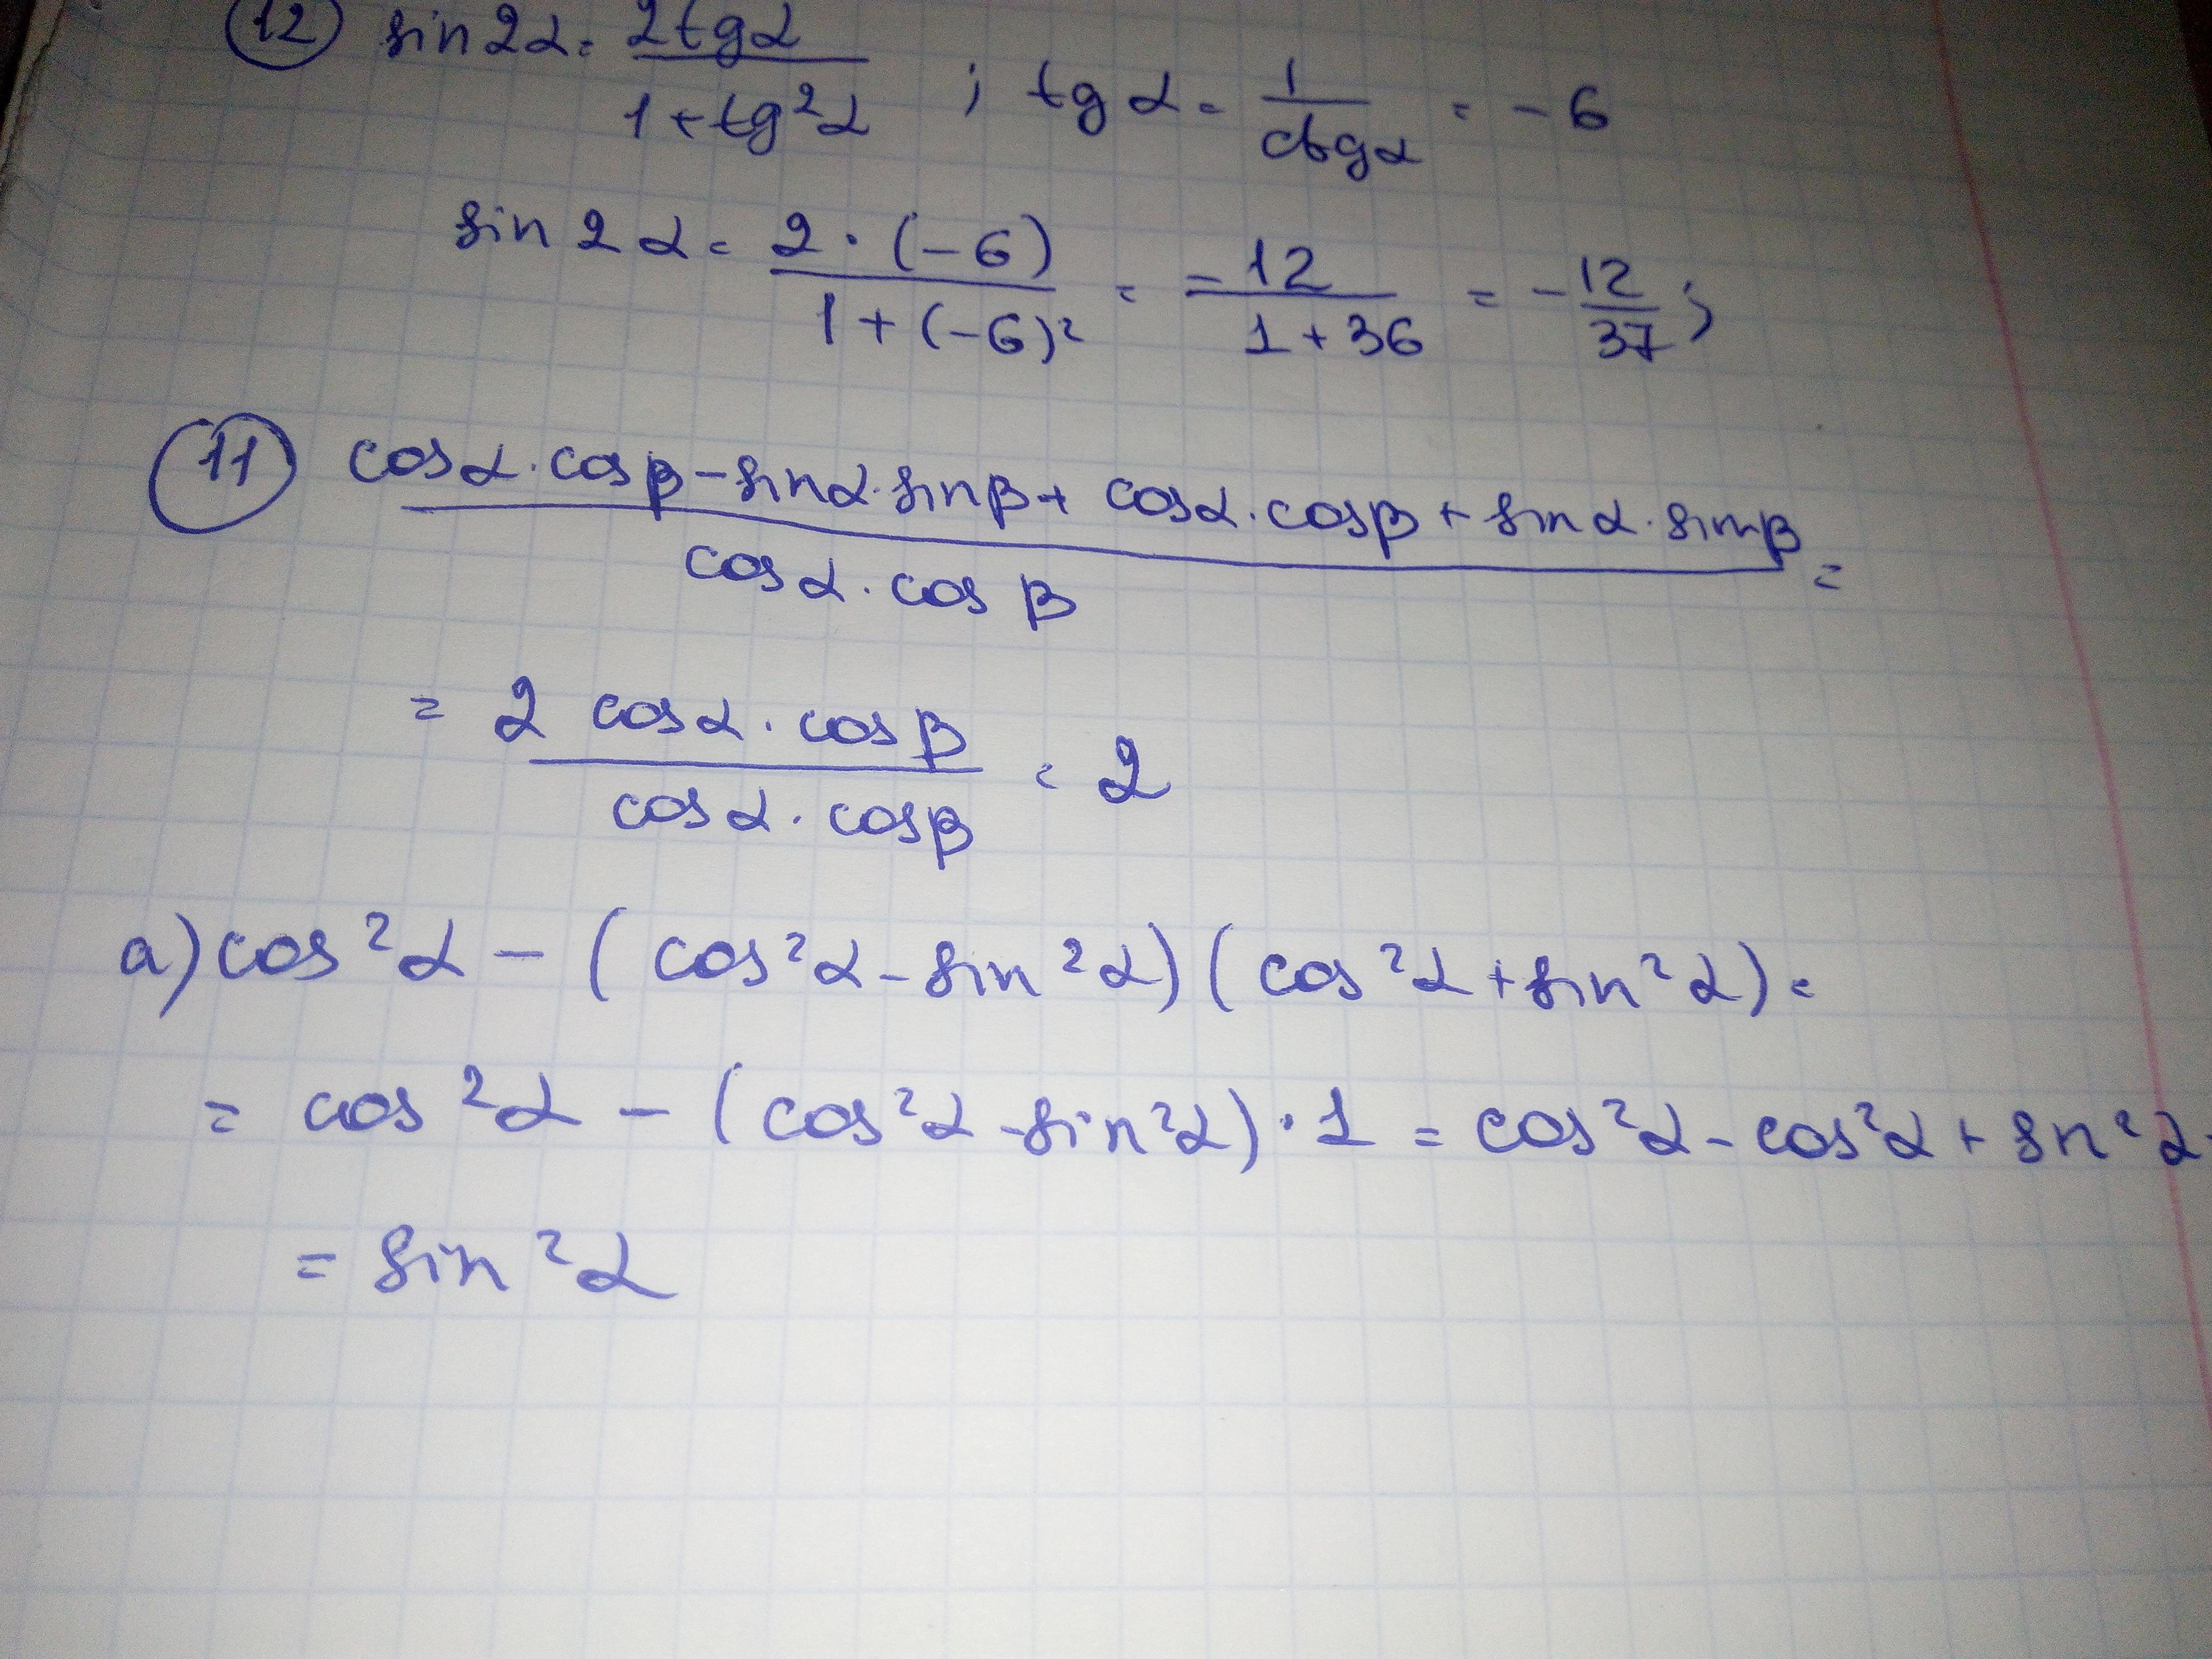 12 sin2α = 2tgα / 1+tg²α ; tgα = 1 / ctgα = -6
sin2α = 2·(-6) / 1+(-6)² = -12 / 1+36 = -12/37;
11 cosα·cosβ-sinα·sinβ+cosα·cosβ+sinα·sinβ / cosα·cosβ =
= 2 cosα·cosβ / cosα·cosβ = 2
a) cos²α - (cos²α-sin²α)(cos²α+sin²α) =
= cos²α - (cos²α-sin²α)·1 = cos²α-cos²α+sin²α
= sin²α